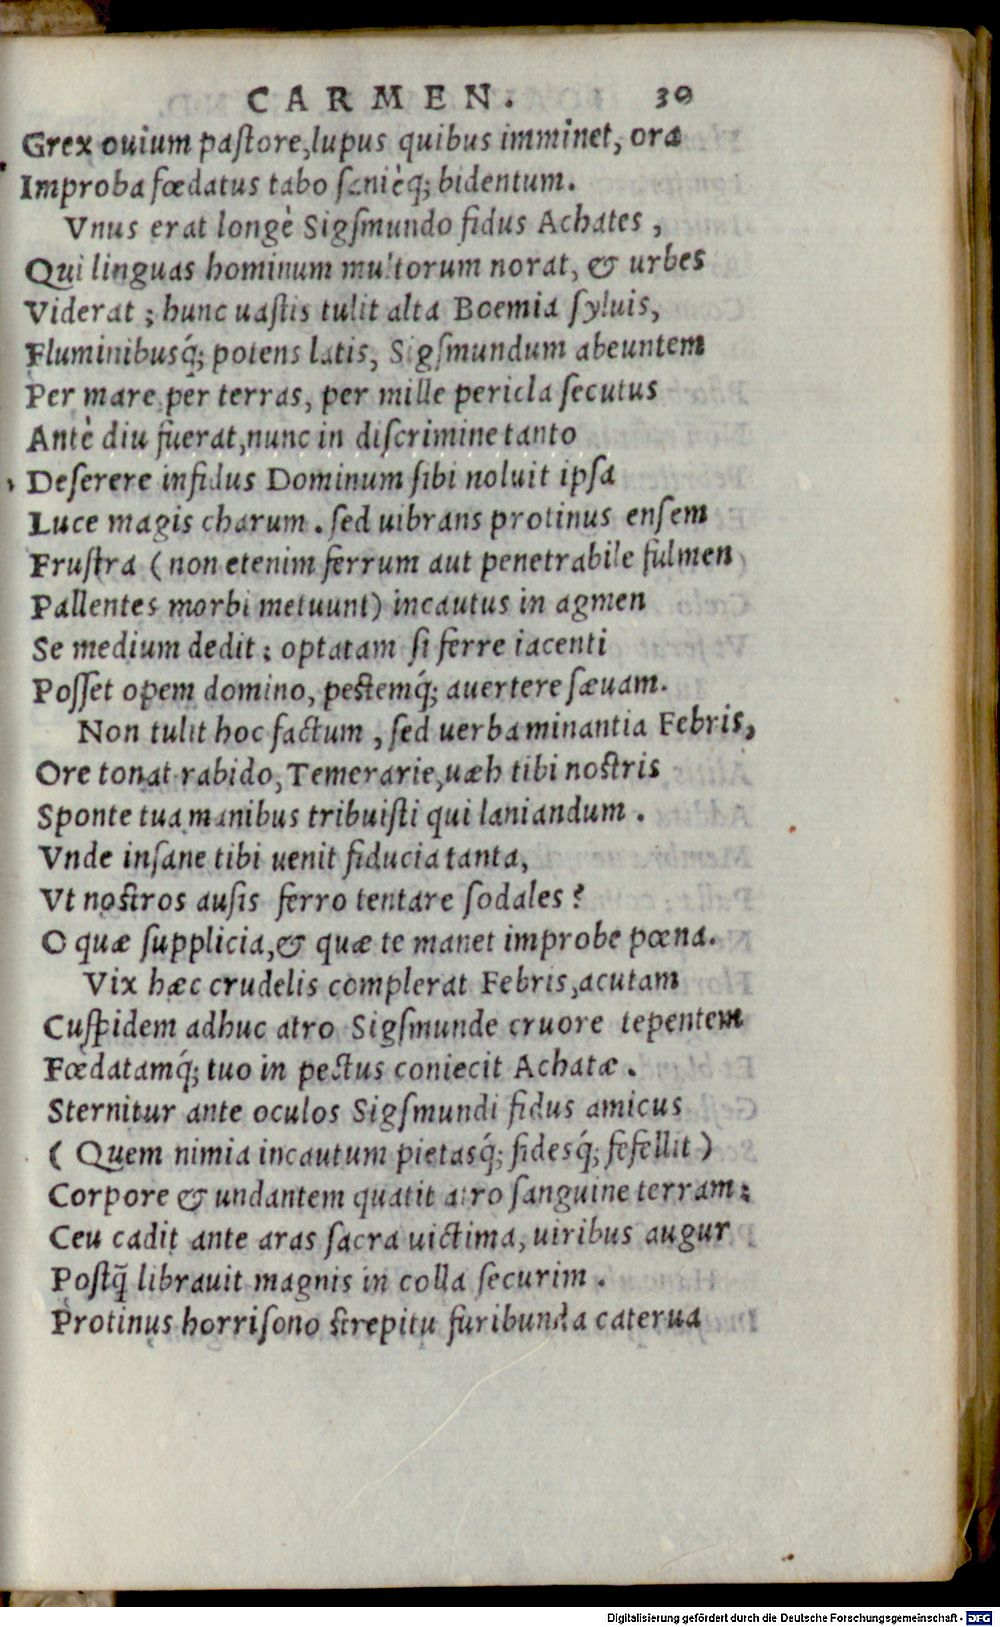 CARMEN. 30
Grex ouium pastore, lupus quibus imminet, ora
Improba fœdatus tabo sanièq́; bidentum.
Vnus erat longè Sigsmundo fidus Achates,
Qui linguas hominum multorum norat, & urbes
Viderat; hunc uastis tulit alta Boemia syluis,
Fluminibusq́; potens latis, Sigsmundum abeuntem
Per mare per terras, per mille pericla secutus
Antè diu fuerat, nunc in discrimine tanto
Deserere infidus Dominum sibi noluit ipsa
Luce magis charum. sed uibrans protinus ensem
Frustra (non etenim ferrum aut penetrabile fulmen
Pallentes morbi metuunt) incautus in agmen
Se medium dedit: optatam si ferre iacenti
Posset opem domino, pestemq́; auertere sæuam.
Non tulit hoc factum, sed uerba minantia Febris,
Ore tonat rabido, Temerarie, uæh tibi nostris
Sponte tua manibus tribuisti qui laniandum.
Vnde insane tibi uenit fiducia tanta,
Vt nostros ausis ferro tentare sodales?
O quæ supplicia, & quæ te manet improbe pœna.
Vix hæc crudelis complerat Febris, acutam
Cuspidem adhuc atro Sigsmunde cruore tepentem
Fœdatamq́; tuo in pectus coniecit Achatæ.
Sternitur ante oculos Sigsmundi fidus amicus
(Quem nimia incautum pietasq́; fidesq́; fefellit)
Corpore & undantem quatit atro sanguine terram:
Ceu cadit ante aras sacra uictima, uiribus augur
Postq̃ librauit magnis in colla securim.
Protinus horrisono strepitu furibunda caterua
Digitalisierung gefördert durch die Deutsche Forschungsgemeinschaft - DFG